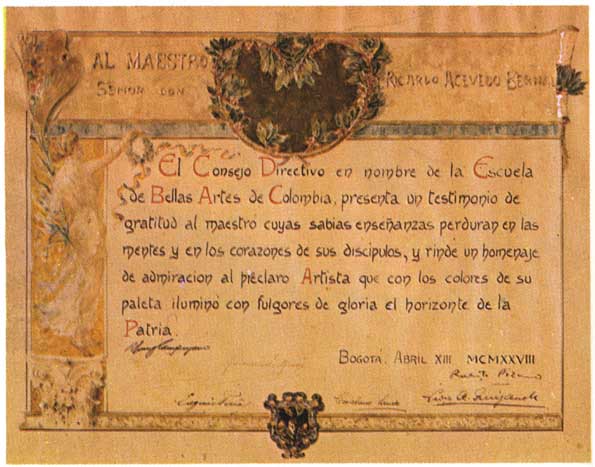 AL MAESTRO
SEÑOR DON
RICARDO ACEVEDO BERNAL
El Consejo Directivo en nombre de la Escuela
de Bellas Artes de Colombia, presenta un testimonio de
gratitud al maestro cuyas sabias enseñanzas perduran en las
mentes y en los corazones de sus discipulos, y rinde un homenaje
de admiracion al préclaro Artista que con los colores de su
paleta iluminó con fulgores de gloria el horizonte de la
Patria.
Bogotá, Abril XIII MCMXXVIII